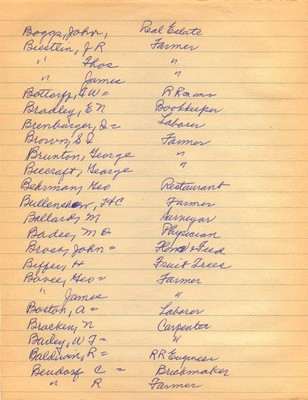 Boggs, John, Real Estate
Biestlin, J R Farmer
" Thos "
" James "
Bottorff, F W = R R
Bradley, E N Bookkeeper
Brenbarger, D = Laborer
Brown, S D Farmer
Brunton, George "
Beecraft, George "
Behrman, Geo Restaurant
H C Farmer
Ballard, M Surveyor
Physician
John = Flour & Feed
H Fruit Trees
Bovee, Geo = Farmer
" James "
Bostoh, A = Laborer
Bracken, N Carpenter
Bailey, W F = "
Baldwin, R = RR Engineer
Bendorf C = Brickmaker
" R Farmer